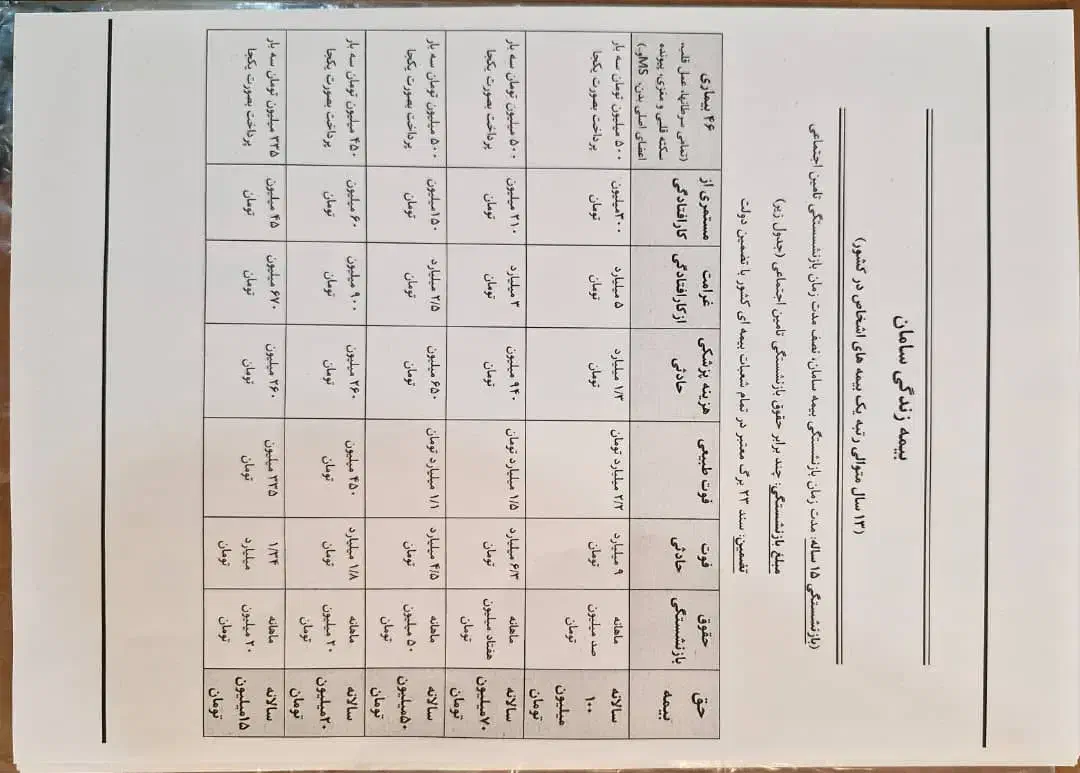 بیمه زندگی سامان
(۱۳ سال متوالی رتبه یک بیمه های اشخاص در کشور)
(بازنشستگی ۱۵ ساله: مدت زمان بازنشستگی بیمه سامان، نصف مدت زمان بازنشستگی تامین اجتماعی
مبلغ بازنشستگی: چند برابر حقوق بازنشستگی تامین اجتماعی (جدول زیر)
تضمین: سند ۲۳ برگ معتبر در تمام شعبات بیمه ای کشور با تضمین دولت
حق
بیمه
حقوق
بازنشستگی
فوت
حادثی
فوت طبیعی
هزینه پزشکی
حادثی
غرامت
ازکارافتادگی
مستمری از
کارافتادگی
۴۶ بیماری
(تمامی سرطانها، عمل قلب،
سکته قلبی و مغزی، پیونده
اعضای اصلی بدن، MSو..)
سالانه
۱۰۰
میلیون
تومان
ماهانه
صد میلیون
تومان
۹ میلیارد
تومان
۲/۲ میلیارد تومان
۱/۳ میلیارد
تومان
۵ میلیارد
تومان
۳۰۰میلیون
تومان
۵۰۰ میلیون تومان سه بار
پرداخت بصورت یکجا
سالانه
۷۰میلیون
تومان
ماهانه
هفتاد میلیون
تومان
۶/۳ میلیارد
تومان
۱/۵ میلیارد تومان
۹۴۰ میلیون
تومان
۳ میلیارد
تومان
۲۱۰ میلیون
تومان
۵۰۰ میلیون تومان سه بار
پرداخت بصورت یکجا
سالانه
۵۰میلیون
تومان
ماهانه
۵۰ میلیون
تومان
۴/۵ میلیارد
تومان
۱/۱ میلیارد تومان
۶۵۰ میلیون
تومان
۲/۵ میلیارد
تومان
۱۵۰میلیون
تومان
۵۰۰ میلیون تومان سه بار
پرداخت بصورت یکجا
سالانه
۲۰میلیون
تومان
ماهانه
۲۰ میلیون
تومان
۱/۸ میلیارد
تومان
۴۵۰ میلیون
تومان
۲۶۰ میلیون
تومان
۹۰۰ میلیون
تومان
۶۰ میلیون
تومان
۴۵۰ میلیون تومان سه بار
پرداخت بصورت یکجا
سالانه
۱۵میلیون
تومان
ماهانه
۲۰ میلیون
تومان
۱/۳۴
میلیارد
تومان
۳۳۵ میلیون
تومان
۲۶۰ میلیون
تومان
۶۷۰ میلیون
تومان
۴۵ میلیون
تومان
۳۳۵ میلیون تومان سه بار
پرداخت بصورت یکجا